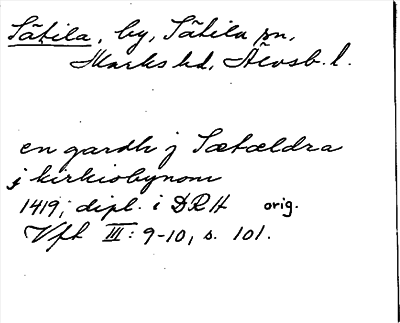 Sätila, by, Sätila sn,
Marks hd, Älvsb. l.
en gardh j Sætældra
j kirkiobynom
1419, dipl. i DRH orig.
Vft III: 9-10, s. 101.